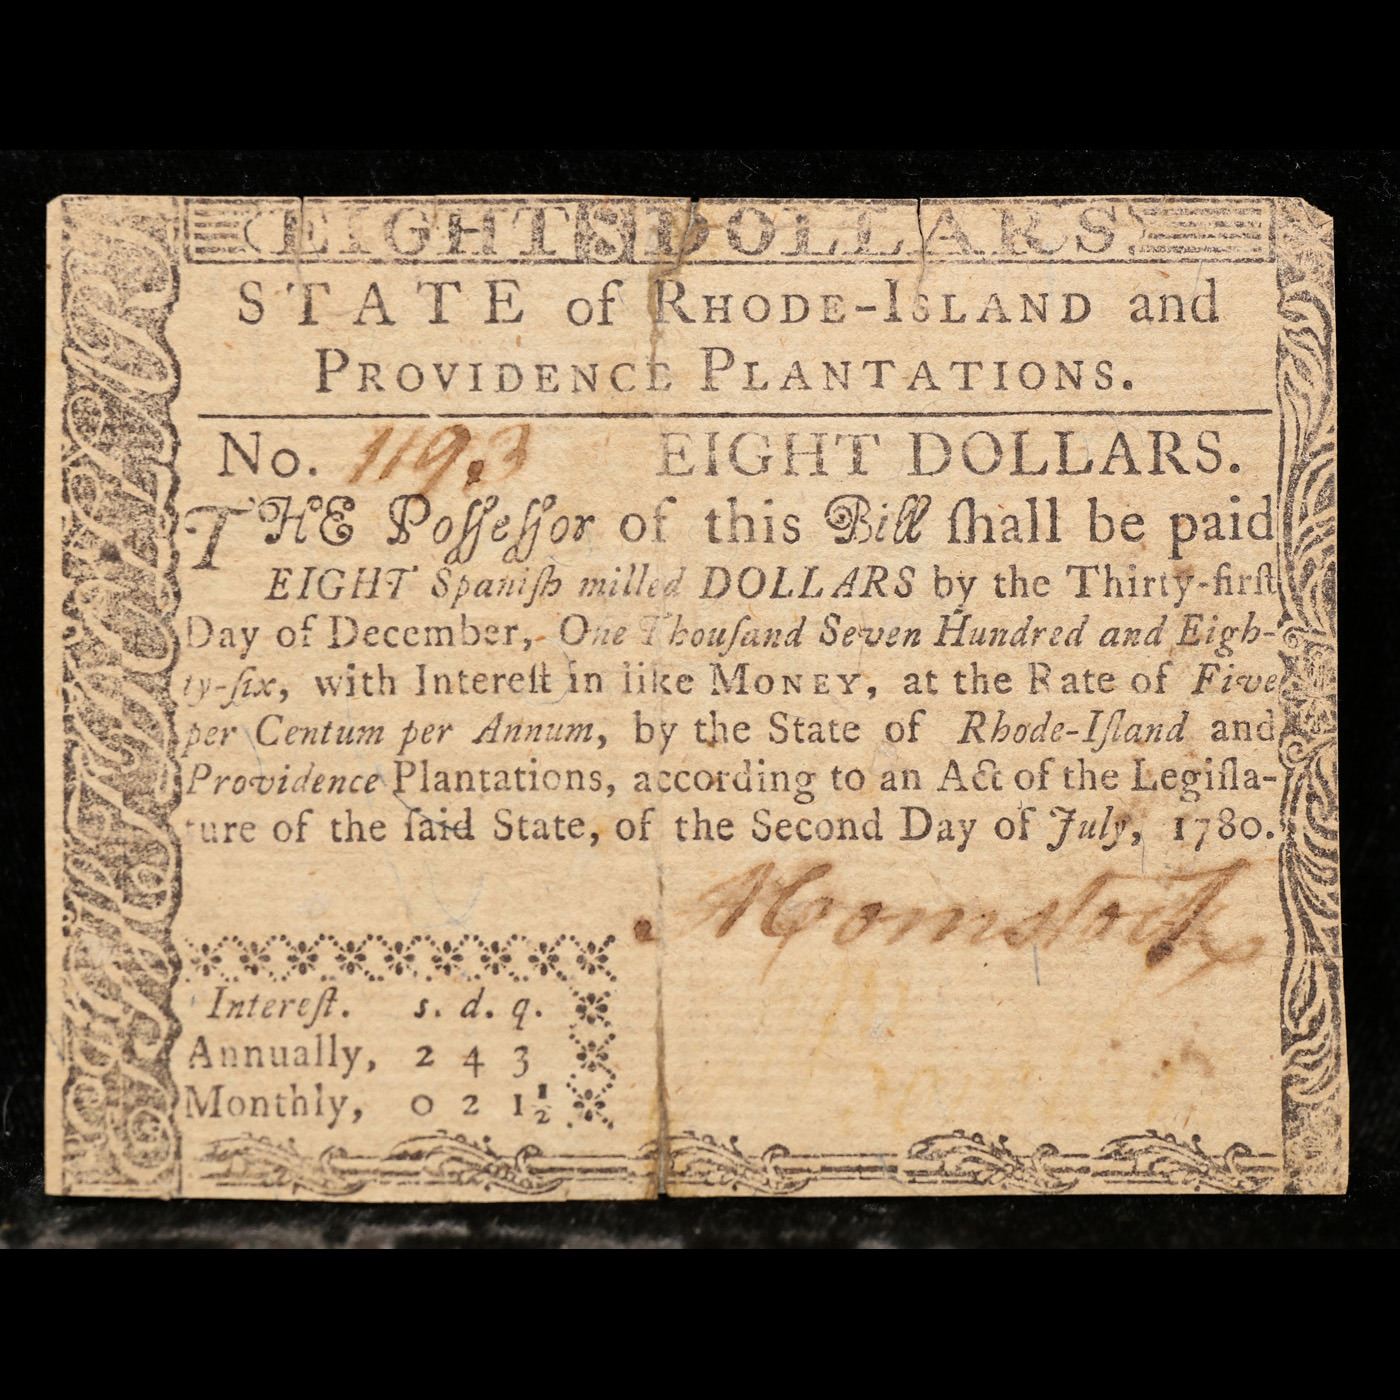 EIGHT 8 DOLLARS.
STATE of RHODE-ISLAND and
PROVIDENCE PLANTATIONS.
No. 1193 EIGHT DOLLARS.
THE Poſſeſſor of this Bill ſhall be paid
EIGHT Spaniſh milled DOLLARS by the Thirty-firſt
Day of December, One Thouſand Seven Hundred and Eigh-
ty-ſix, with Intereſt in like MONEY, at the Rate of Five
per Centum per Annum, by the State of Rhode-Iſland and
Providence Plantations, according to an Act of the Legiſla-
ture of the ſaid State, of the Second Day of July, 1780.
A Comstock
Intereſt. s. d. q.
Annually, 2 4 3
Monthly, 0 2 1½